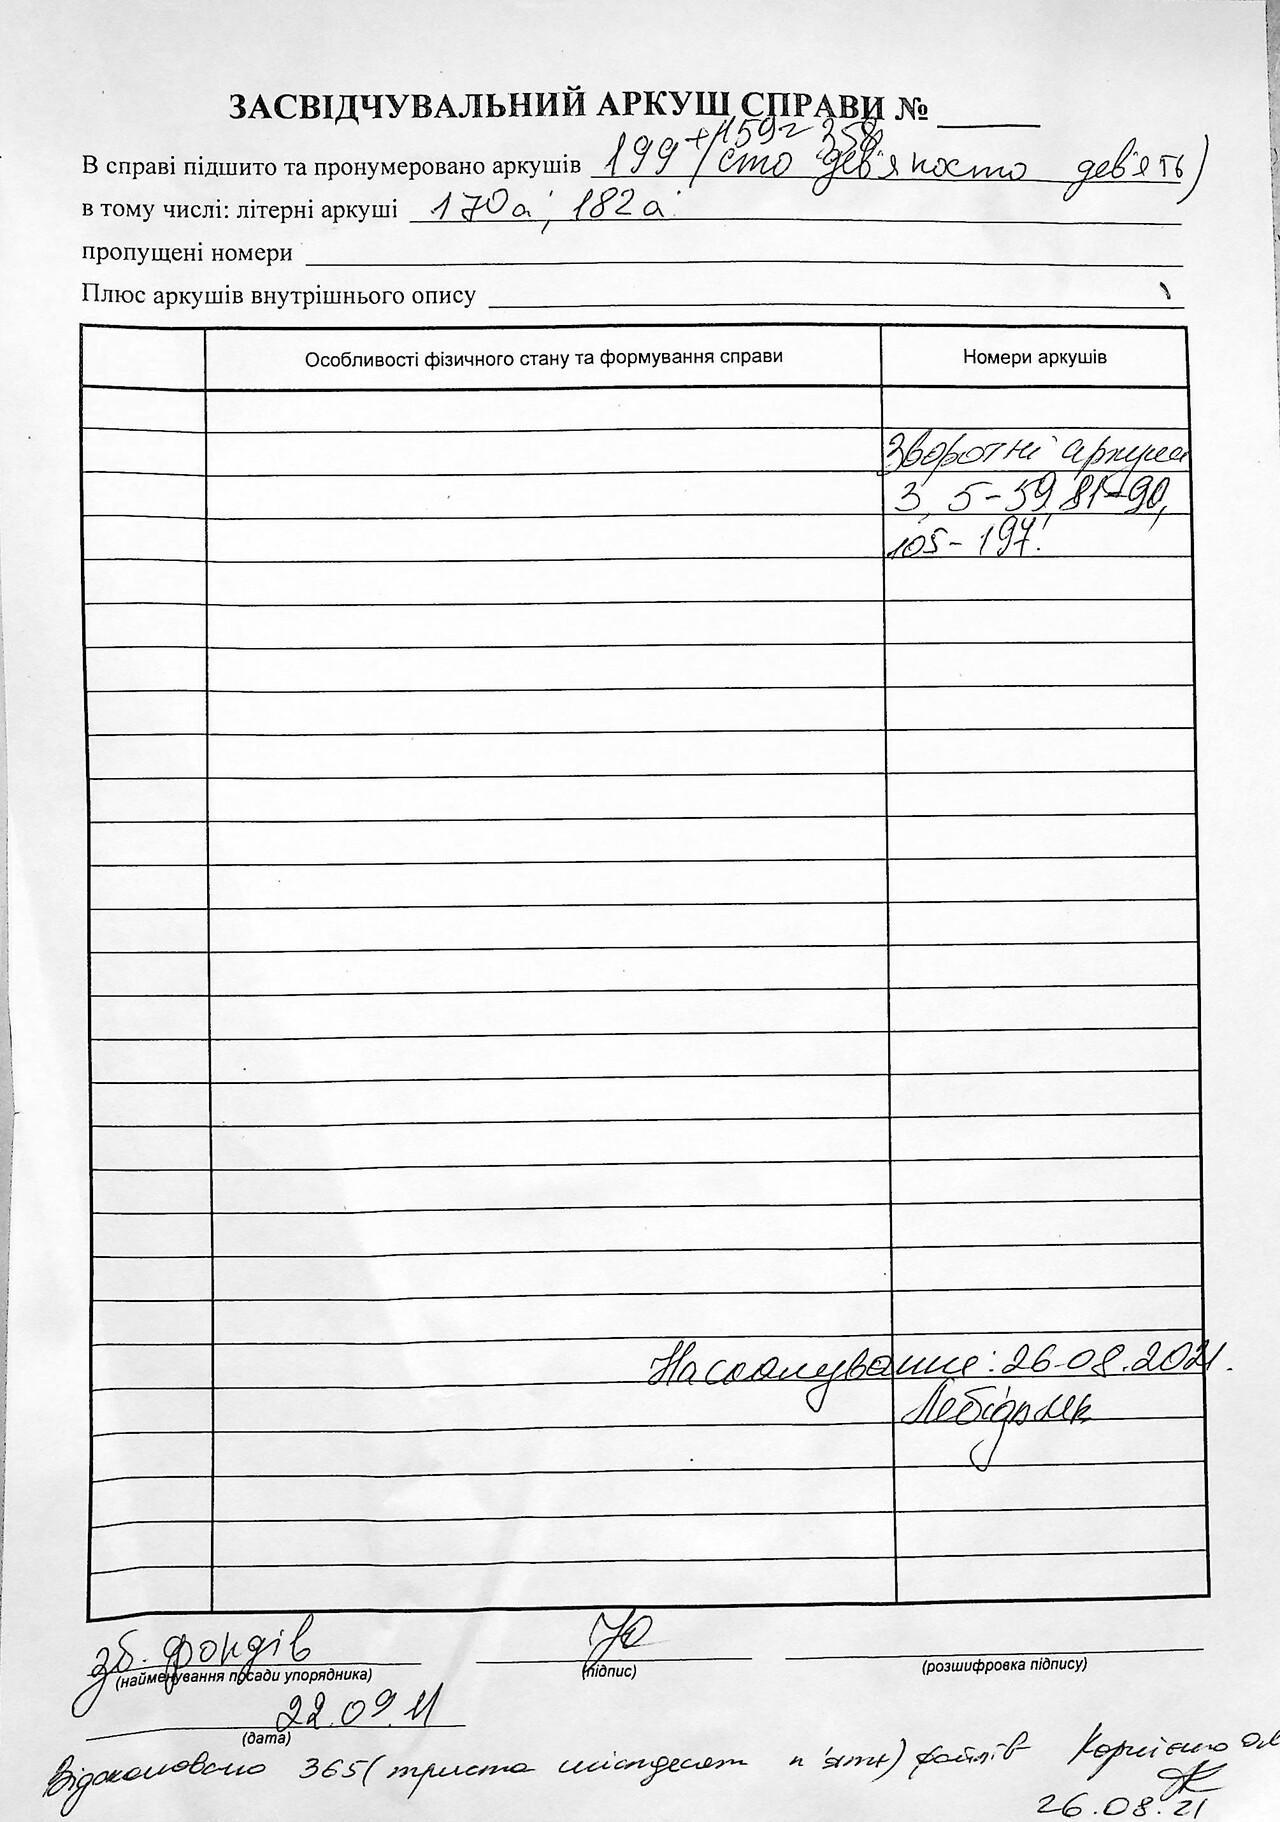 ЗАСВІДЧУВАЛЬНИЙ АРКУШ СПРАВИ № ____
+159= 358
В справі підшито та пронумеровано аркушів 199 (сто дев'яносто дев'ять)
в тому числі: літерні аркуші 170а, 182а
пропущені номери
Плюс аркушів внутрішнього опису
Особливості фізичного стану та формування справи Номери аркушів
Зворотні аркуши
3, 5-59, 81-90,
105-197.
26.08.2021.
зб. фондів
(найменування посади упорядника) (підпис) (розшифровка підпису)
22.09.11
(дата)
Відскановано 365 (триста шістдесят п'ять) файлів
26.08.21